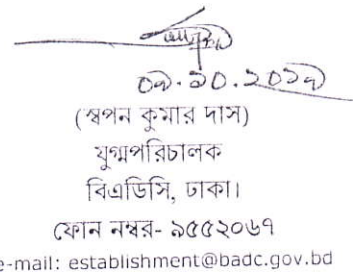 ০৭.১০.২০১৯
(স্বপন কুমার দাস)
যুগ্মপরিচালক
বিএডিসি, ঢাকা।
ফোন নম্বর- ৯৫৫২০৬৭
e-mail: establishment@badc.gov.bd